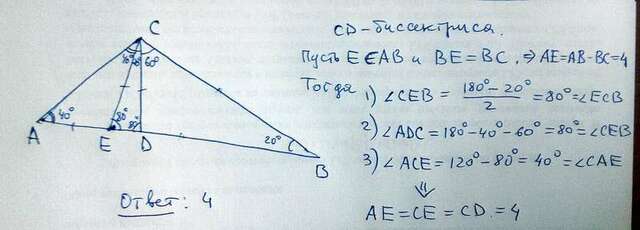 CD-биссектриса.
Пусть E∈AB и BE=BC, ⇒ AE=AB-BC=4
Тогда 1) ∠CEB = (180°-20°)/2 = 80° = ∠ECB
2) ∠ADC = 180°-40°-60° = 80° = ∠CEB
3) ∠ACE = 120°-80° = 40° = ∠CAE
⇓
AE=CE=CD=4
C
60°
A
40°
80°
80°
E
D
20°
B
Ответ: 4